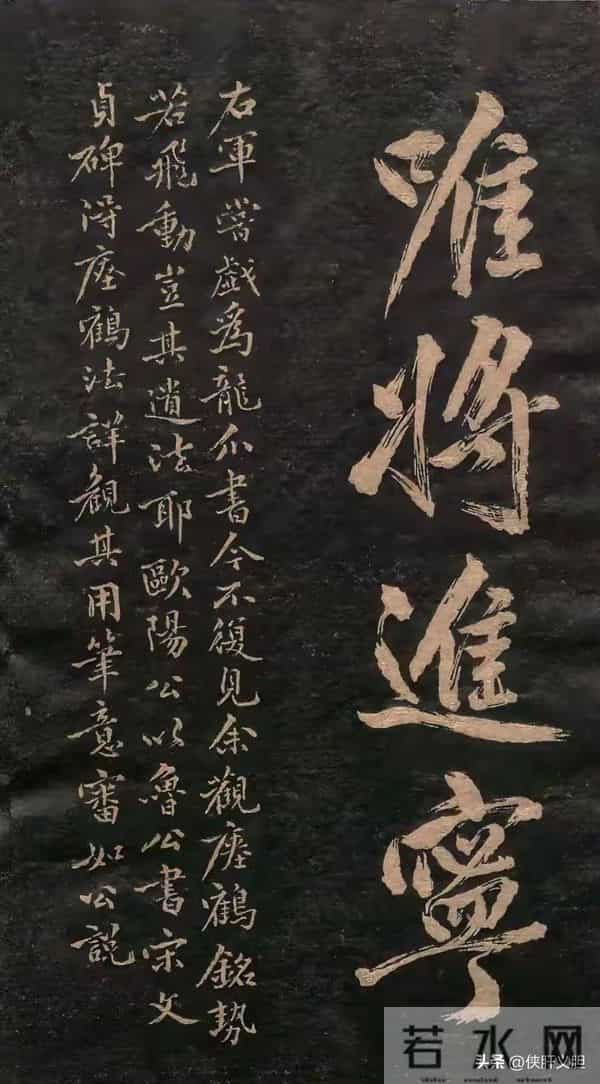 唯將進寧
右軍嘗戲爲龍爪書今不復見余觀瘞鶴銘勢
若飛動豈其遺法耶歐陽公以魯公書宋文
貞碑得瘞鶴法詳觀其用筆意審如公說
若水网
头条 @侠肝义胆